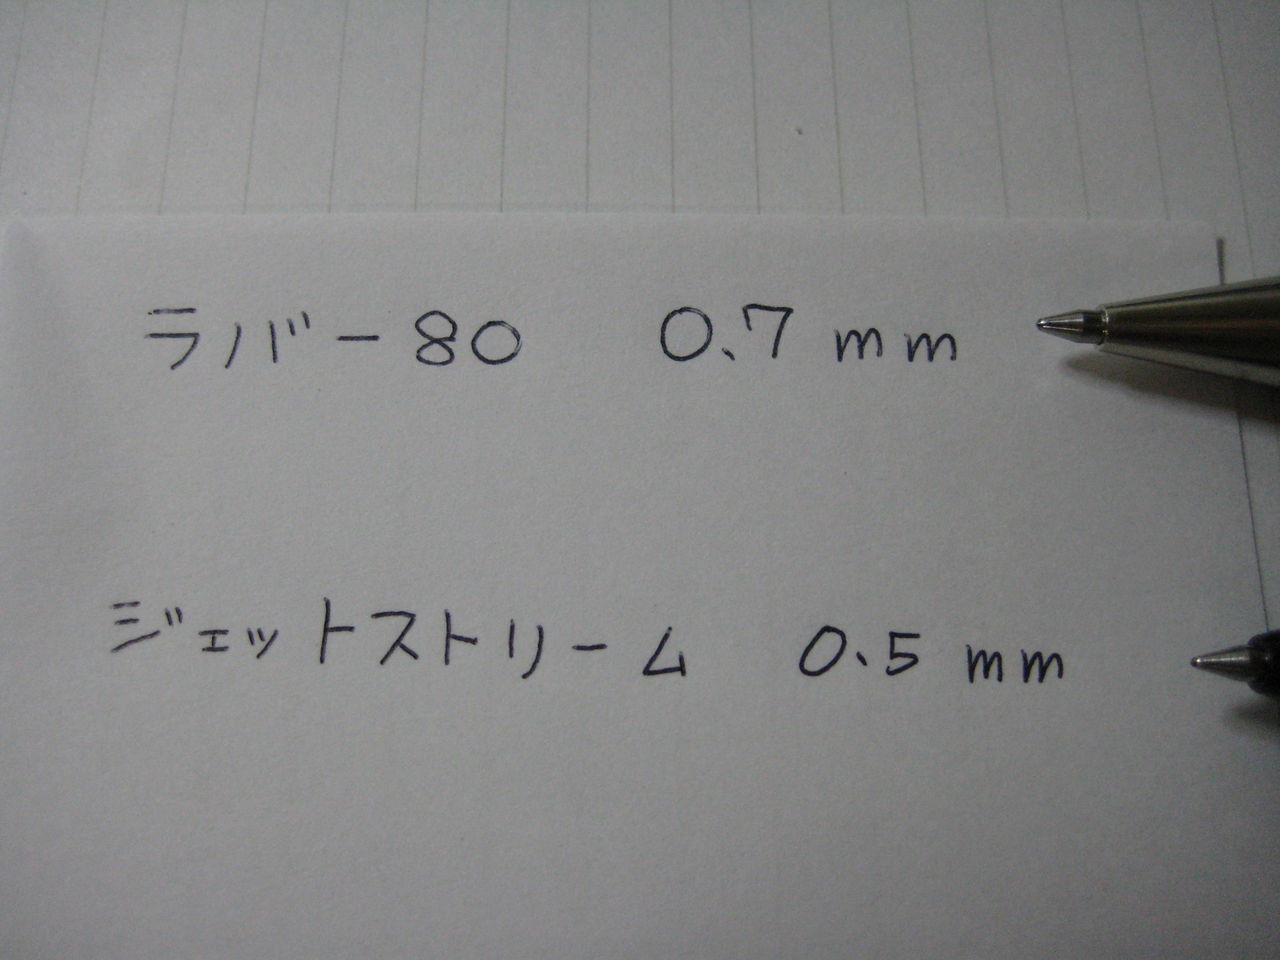 ラバー80 0.7mm
ジェットストリーム 0.5mm